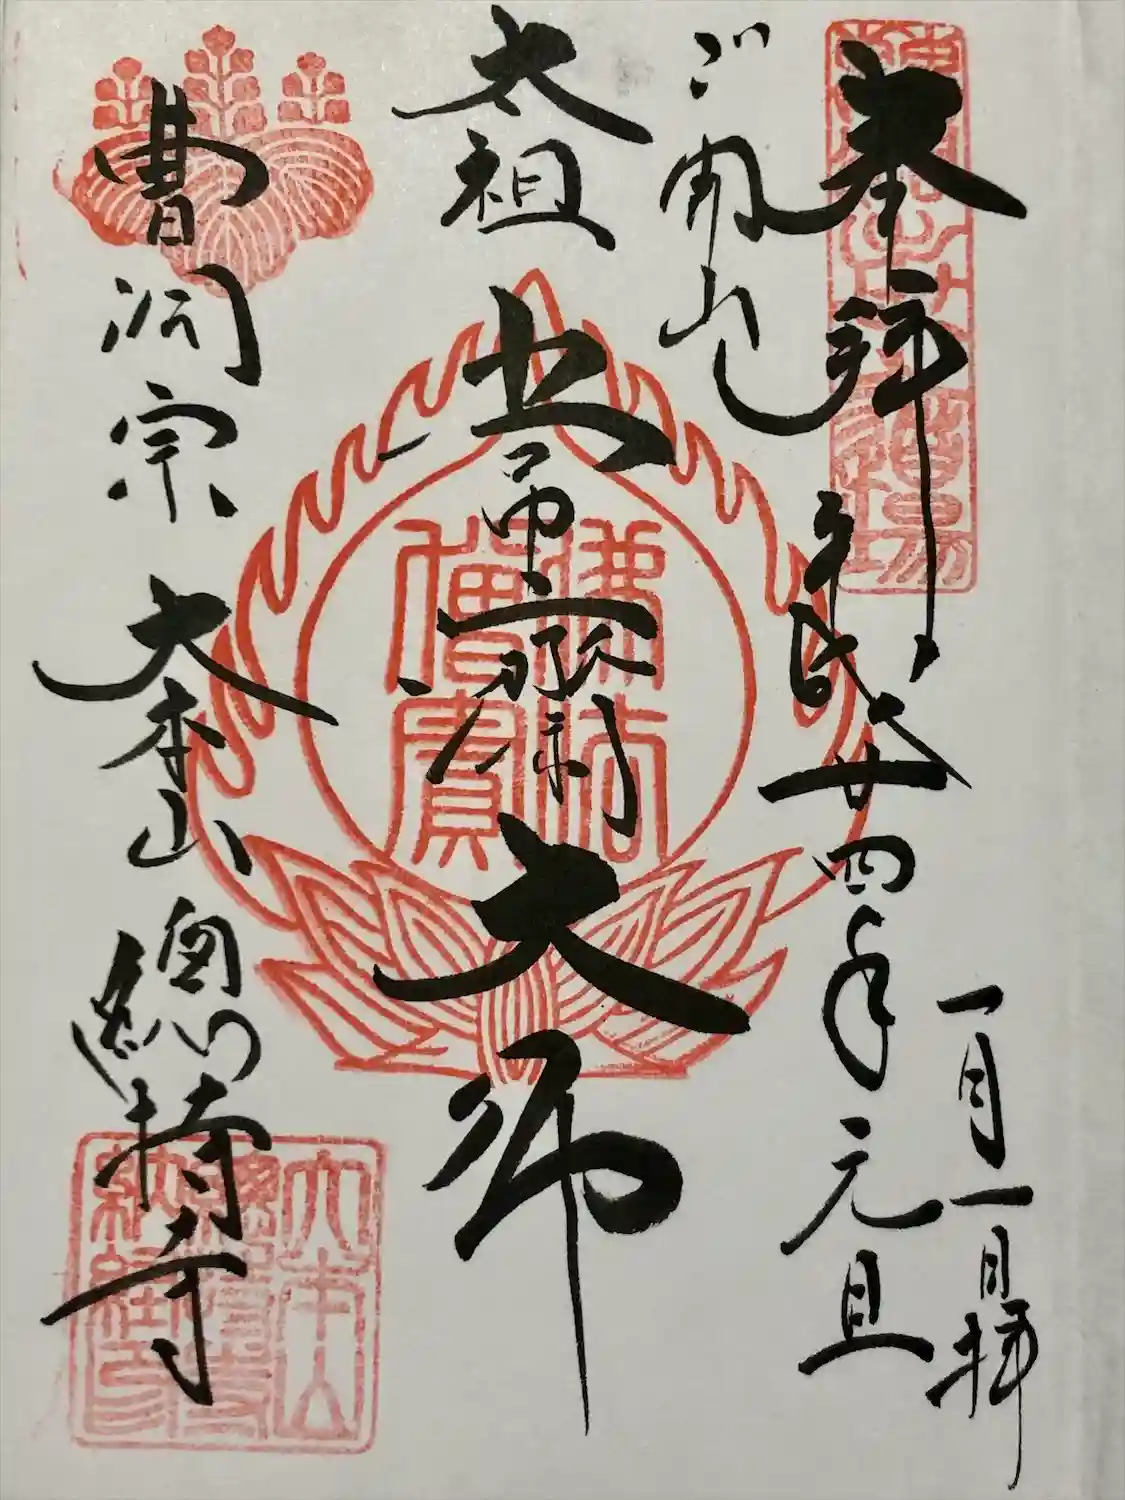 奉拝
一月一日拝
平成廿四年元旦
ご開山
太祖 常濟大師
佛法
僧寶
曹洞宗 大本山 總持寺
大本山
總持寺
納経印